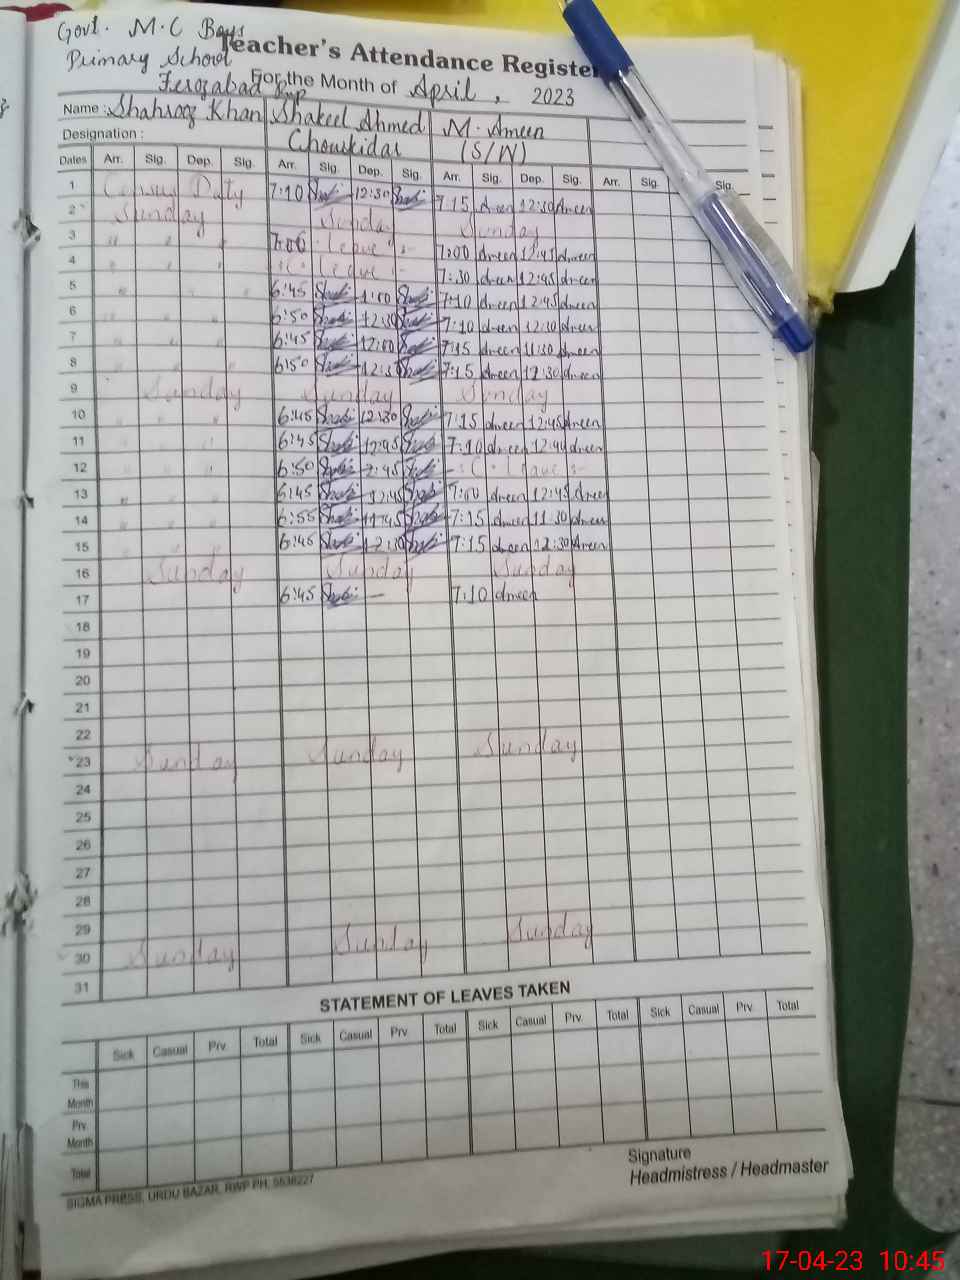 Govt. M.C Boys
Primary School
Teacher's Attendance Register
Ferozabad Rwp
For the Month of April, 2023
Name : Shahroz Khan Shakeel Ahmed M. Ameen
Designation : Chowkidar (S/W)
Dates Arr. Sig. Dep. Sig. Arr. Sig. Dep. Sig. Arr. Sig. Dep. Sig. Arr. Sig. Sig.
1 Census Duty 7:10 12:30 7:15 Ameen 12:30 Ameen
2 Sunday Sunday Sunday
3 " " " Leave :- 7:00 Ameen 12:45 Ameen
4 " " " :C. Leave :- 7:30 Ameen 12:45 Ameen
5 " " " 6:45 1:00 7:10 Ameen 12:45 Ameen
6 " " " 6:50 12:30 7:10 Ameen 12:30 Ameen
7 " " " 6:45 12:00 7:15 Ameen 11:30 Ameen
8 " " " 6:50 12:30 7:15 Ameen 12:30 Ameen
9 Sunday Sunday Sunday
10 " " " 6:45 12:30 7:15 Ameen 12:45 Ameen
11 " " " 6:45 12:45 7:10 Ameen 12:40 Ameen
12 " " " 6:50 -:C. Leave :-
13 " " " 6:45 12:45 7:00 Ameen 12:45 Ameen
14 " " " 6:55 11:45 7:15 Ameen 11:30 Ameen
15 " " " 6:45 12:30 7:15 Ameen 12:30 Ameen
16 Sunday Sunday Sunday
17 6:45 — 7:10 Ameen
18
19
20
21
22
23 Sunday Sunday Sunday
24
25
26
27
28
29
30 Sunday Sunday Sunday
31
STATEMENT OF LEAVES TAKEN
Sick Casual Prv. Total Sick Casual Prv. Total Sick Casual Prv. Total Sick Casual Prv. Total
This
Month
Prv.
Month
Total
SIGMA PRESS, URDU BAZAR, RWP PH, 5536227
Signature
Headmistress / Headmaster
17-04-23 10:45